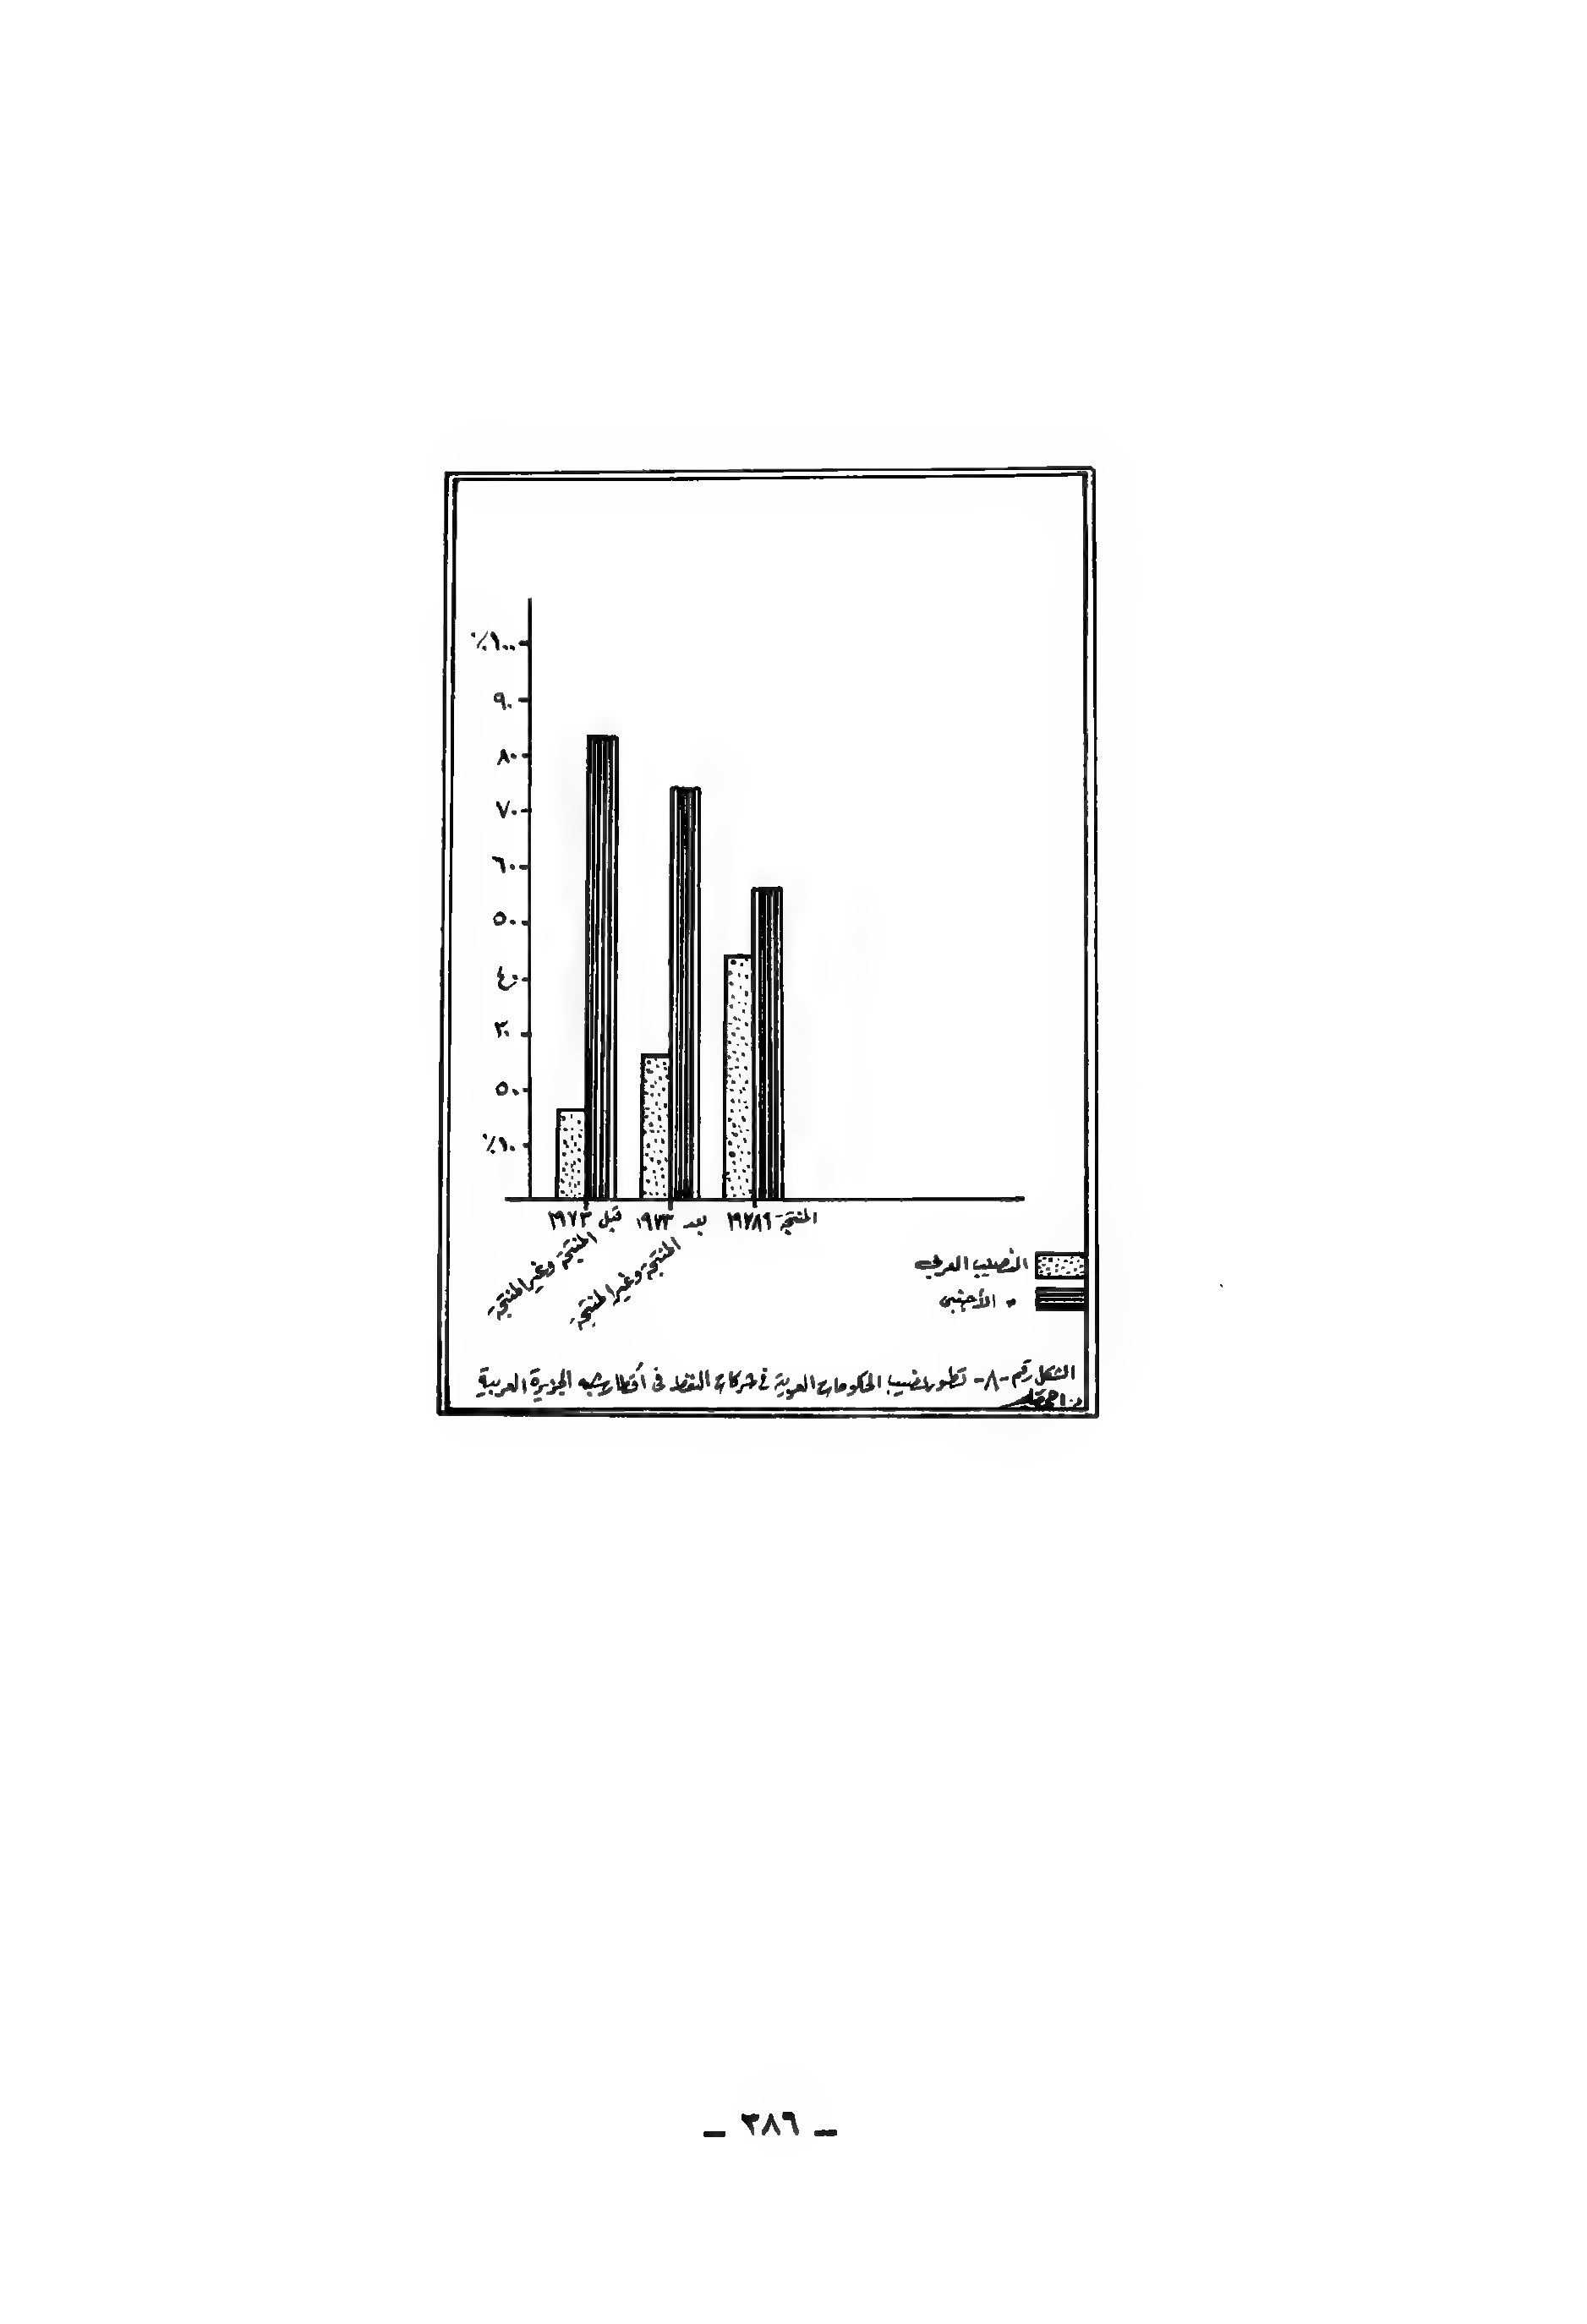 ٪١٠٠
٩٠
٨٠
٧٠
٦٠
٥٠
٤٠
٣٠
٥٠
٪١٠
قبل ١٩٧٣
المنتجة وغير المنتجة
بعد ١٩٧٣
المنتجة وغير المنتجة
المنتجة
النصيب العربي
〃 الأجنبي
الشكل رقم -٨- تطور نصيب الحكومات العربية في شركات النفط في أقطار شبه الجزيرة العربية
— ٣٨٦ —